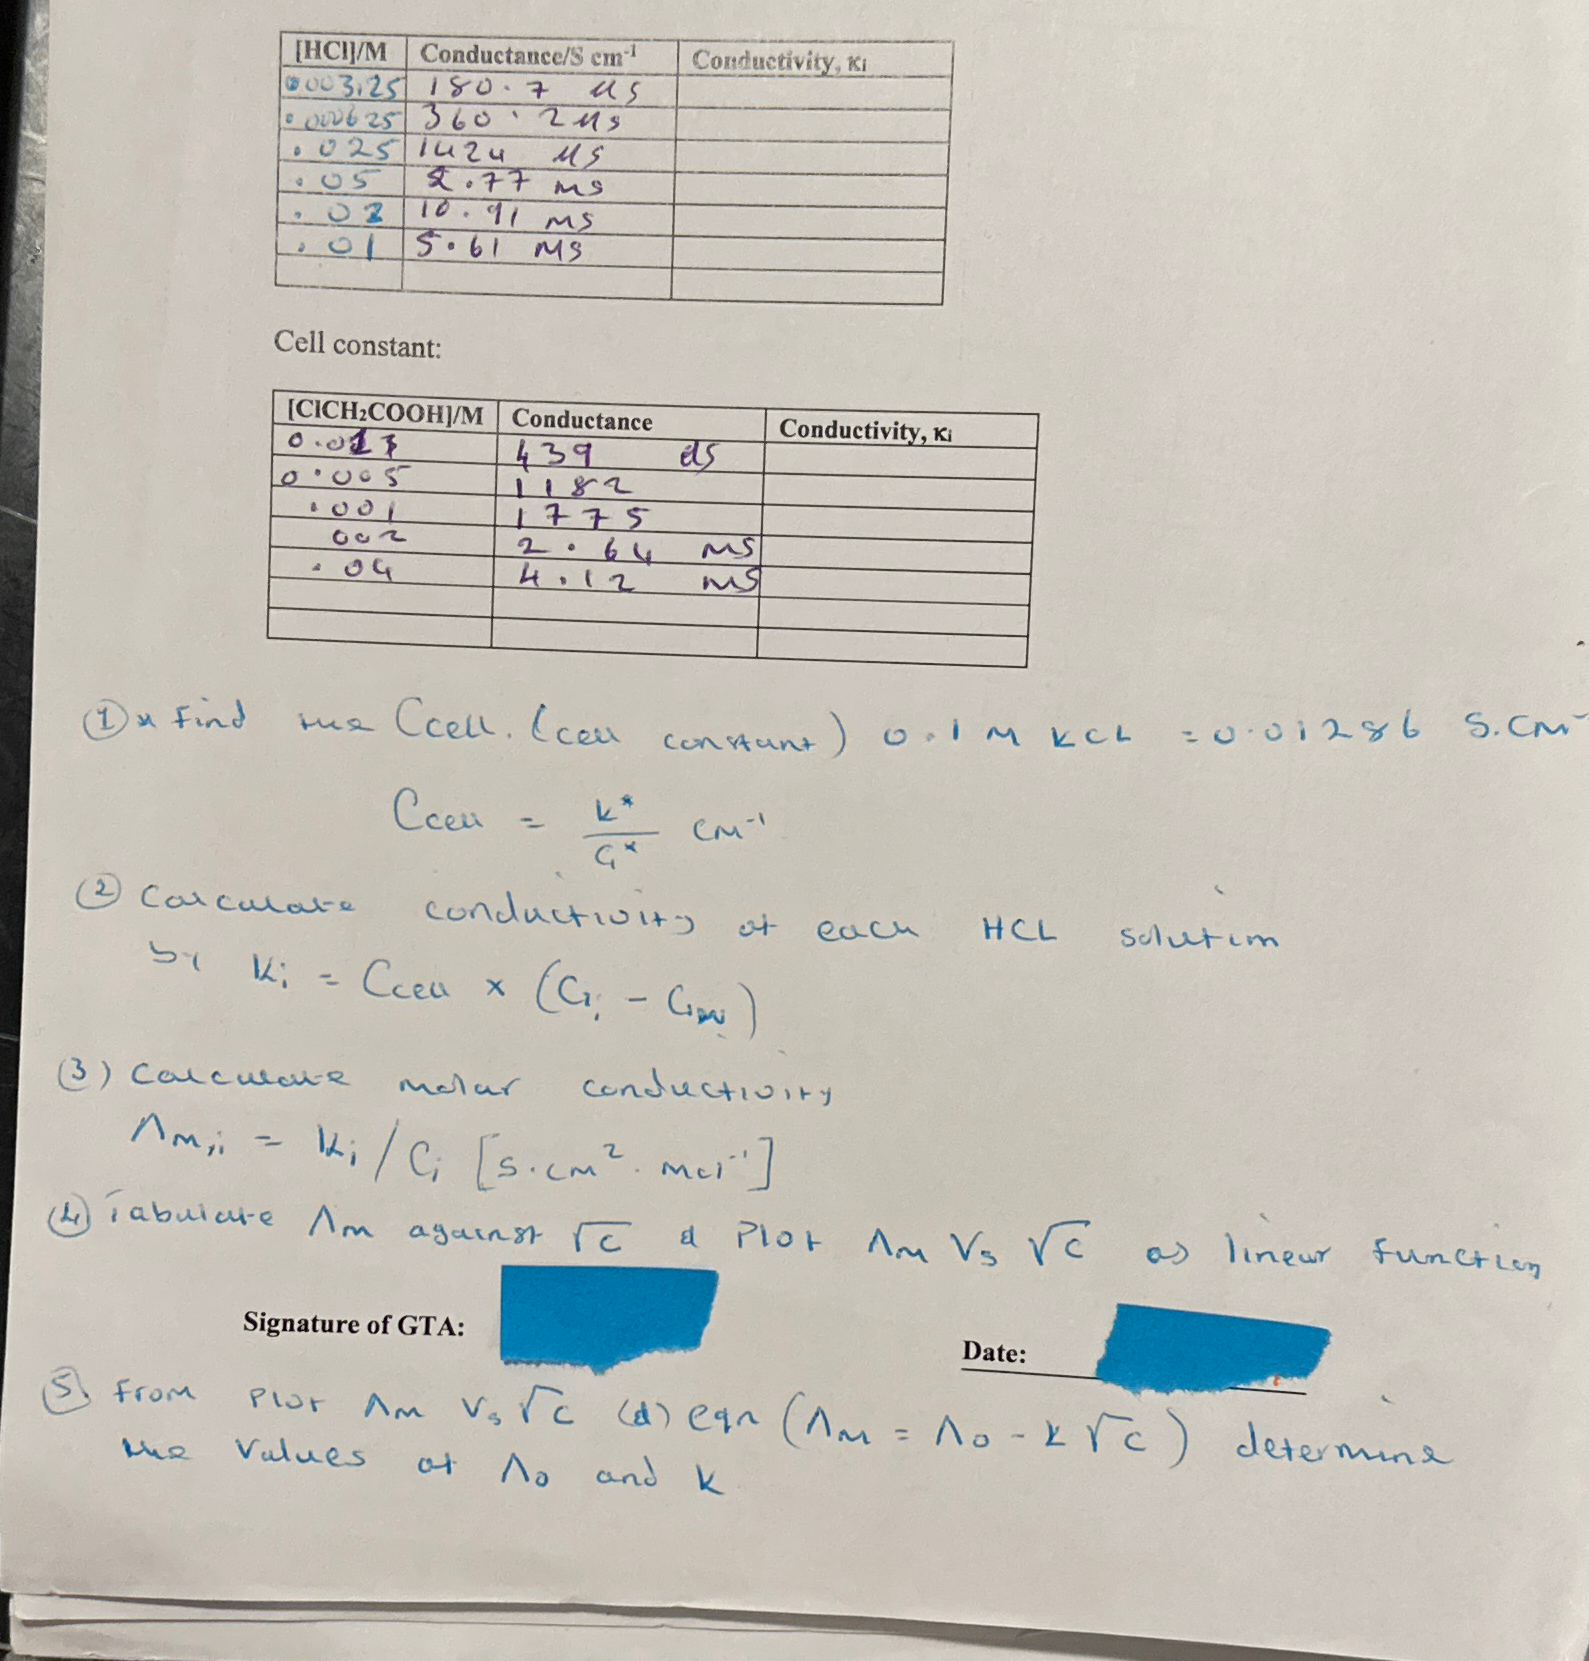 [HCl]/M Conductance/S cm⁻¹ Conductivity, κi
0003125 180.7 µs
.000625 360.2 µs
.025 1424 µs
.05 2.77 ms
.02 10.91 ms
.01 5.61 ms
Cell constant:
[ClCH₂COOH]/M Conductance Conductivity, κi
439
0.005 1182
.001 1775
002 2.64 ms
.04 4.12 ms
① * Find the Ccell. (cell constant) 0.1 M KCL = 0.01286 S.CM⁻
Ccell = k*/G* cm⁻¹
② Calculate conductivity of each HCL solution
by Ki = Ccell × (Gi - Gw)
(3) Calculate molar conductivity
Λm,i = Ki / Ci [s.cm². mol⁻¹]
④ Tabulate Λm against √c & Plot Λm Vs √c as linear function
Signature of GTA:
Date:
⑤ From Plot Λm Vs √c (&) eqn (Λm = Λo - k√c) determine
the values of Λo and k